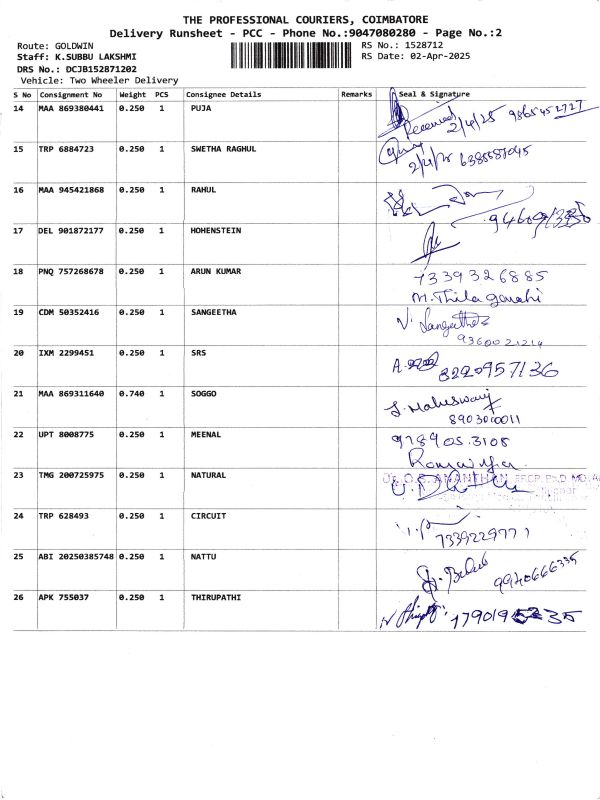 THE PROFESSIONAL COURIERS, COIMBATORE
Delivery Runsheet - PCC - Phone No.:9047080280 - Page No.:2
Route: GOLDWIN
Staff: K.SUBBU LAKSHMI
DRS No.: DCJB152871202
Vehicle: Two Wheeler Delivery
RS No.: 1528712
RS Date: 02-Apr-2025
S No Consignment No Weight PCS Consignee Details Remarks Seal & Signature
14 MAA 869380441 0.250 1 PUJA
Received 2/4/25 9865452727
15 TRP 6884723 0.250 1 SWETHA RAGHUL
16 MAA 945421868 0.250 1 RAHUL
17 DEL 901872177 0.250 1 HOHENSTEIN
18 PNQ 757268678 0.250 1 ARUN KUMAR
7339326885
M.Thilagavathi
19 CDM 50352416 0.250 1 SANGEETHA
V. Sangeetha
9360021214
20 IXM 2299451 0.250 1 SRS
8220957136
21 MAA 869311640 0.740 1 SOGGO
J. Maheswary
8903000011
22 UPT 8008775 0.250 1 MEENAL
978905.3105
23 TMG 200725975 0.250 1 NATURAL
24 TRP 628493 0.250 1 CIRCUIT
7339229771
25 ABI 20250385748 0.250 1 NATTU
9940666335
26 APK 755037 0.250 1 THIRUPATHI